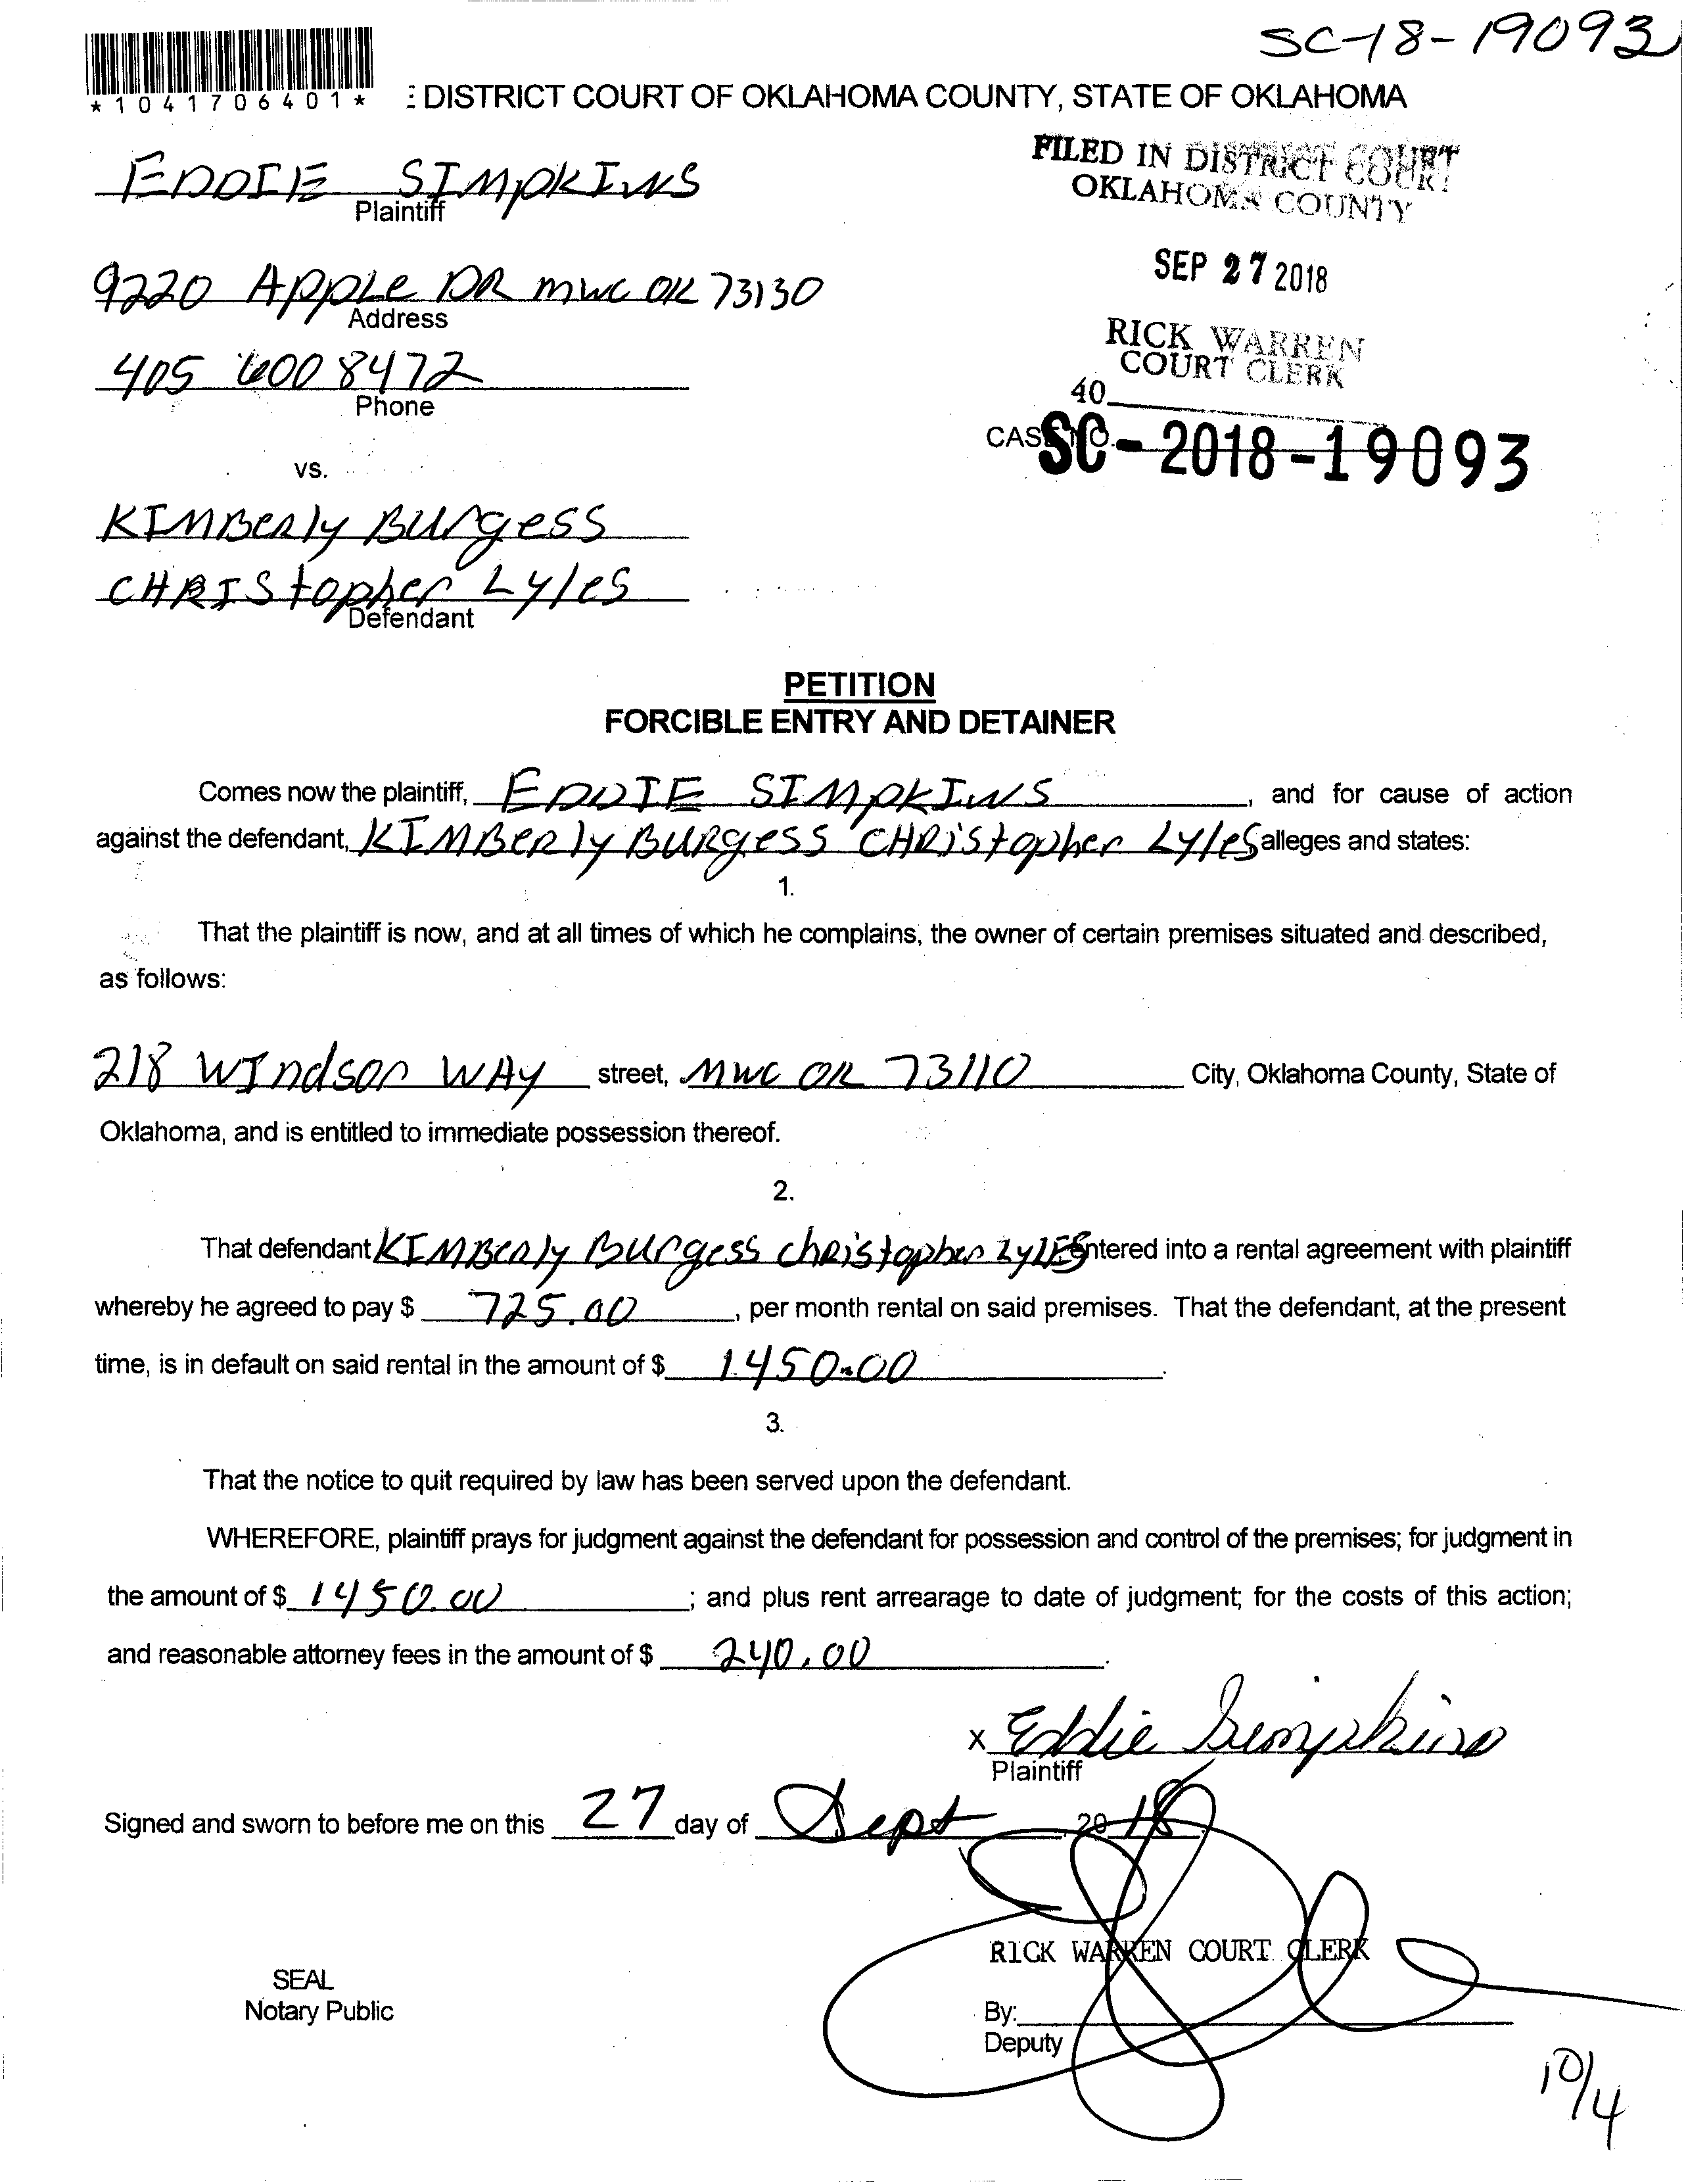 SC-18-19093
*1041706401*
: DISTRICT COURT OF OKLAHOMA COUNTY, STATE OF OKLAHOMA
FILED IN DISTRICT COURT
OKLAHOMA COUNTY
EDDIE SIMPKINS
Plaintiff
SEP 27 2018
9220 Apple DR MWC OK 73130
Address
RICK WARREN
COURT CLERK
405 600 8472
Phone
40
CASE NO. SC-2018-19093
vs.
KIMBERLY BURGESS
CHRISTOPHER LYLES
Defendant
PETITION
FORCIBLE ENTRY AND DETAINER
Comes now the plaintiff, EDDIE SIMPKINS, and for cause of action
against the defendant, KIMBERLY BURGESS CHRISTOPHER LYLES alleges and states:
1.
That the plaintiff is now, and at all times of which he complains, the owner of certain premises situated and described,
as follows:
218 WINDSOR WAY street, MWC OK 73110 City, Oklahoma County, State of
Oklahoma, and is entitled to immediate possession thereof.
2.
That defendant KIMBERLY BURGESS CHRISTOPHER LYLES entered into a rental agreement with plaintiff
whereby he agreed to pay $ 725.00, per month rental on said premises. That the defendant, at the present
time, is in default on said rental in the amount of $ 1450.00.
3.
That the notice to quit required by law has been served upon the defendant.
WHEREFORE, plaintiff prays for judgment against the defendant for possession and control of the premises; for judgment in
the amount of $ 1450.00; and plus rent arrearage to date of judgment; for the costs of this action;
and reasonable attorney fees in the amount of $ 240.00.
x Eddie Simpkins
Plaintiff
Signed and sworn to before me on this 27 day of Sept, 2018.
RICK WARREN COURT CLERK
SEAL
Notary Public
By:
Deputy
10/4